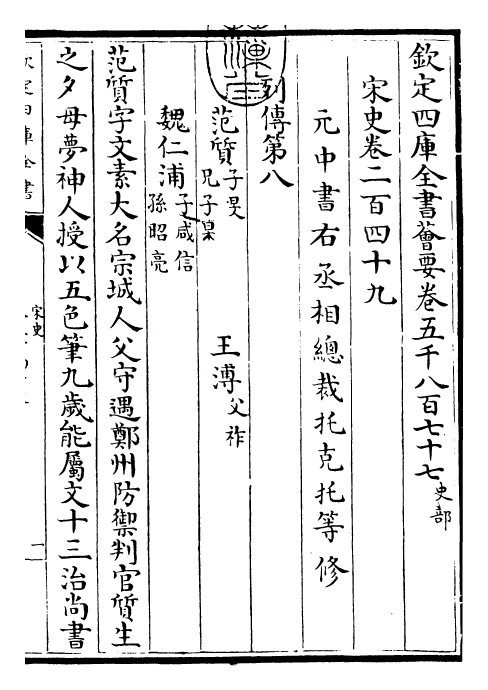 欽定四庫全書薈要卷五千八百七十七史部
宋史卷二百四十九
元中書右丞相總裁托克托等修
列傳第八
范質子旻 兄子杲 王溥父祚
魏仁浦子咸信 孫昭亮
范質字文素大名宗城人父守遇鄭州防禦判官質生
之夕母夢神人授以五色筆九歲能屬文十三治尚書
欽定四庫全書
宋史
一